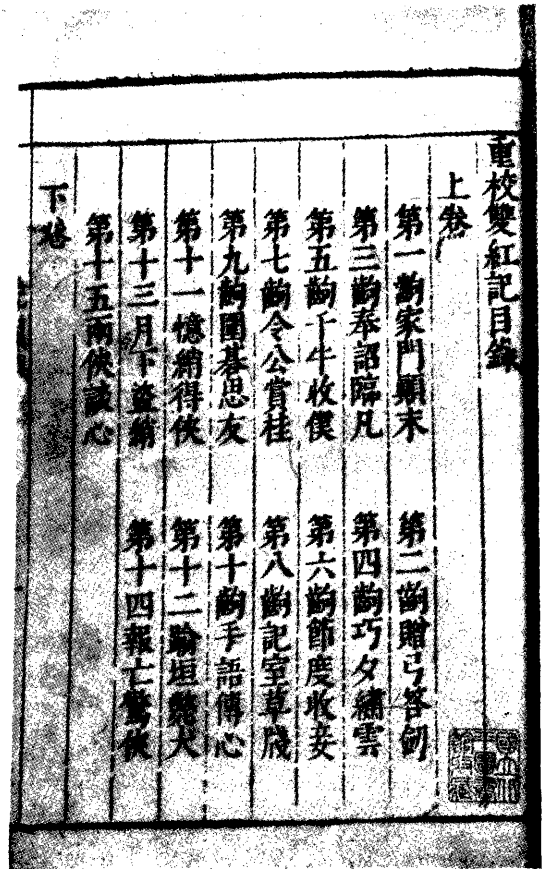 重校雙紅記目錄
上卷
第一齣家門顛末
第二齣贈弓答劒
第三齣奉詔臨凡
第四齣巧夕繡雲
第五齣千牛收僕
第六齣節度收妾
第七齣令公賞桂
第八齣記室草牋
第九齣圍碁思友
第十齣手語傳心
第十一憶綃得俠
第十二踰垣斃犬
第十三月下盜綃
第十四報亡驚俠
第十五兩俠談心
下卷